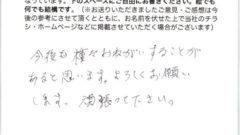 なっていますか？下のスペースにご自由にお書きください。絵でも
何でも結構です。(※お送りいただきましたご意見・ご感想は今
後の参考にさせて頂くとともに、お名前を伏せた上で当社のチラ
シ・ホームページなどに掲載させていただく場合がございます)
今後も様々おねがいすることが
あると思います。よろしくお願い
します。頑張って下さい。